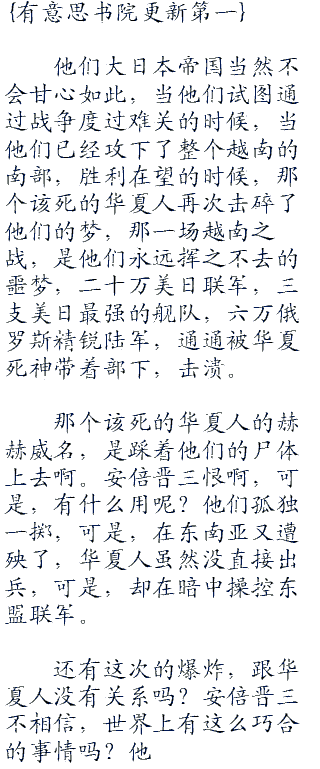 {有意思书院更新第一}
他们大日本帝国当然不
会甘心如此，当他们试图通
过战争度过难关的时候，当
他们已经攻下了整个越南的
南部，胜利在望的时候，那
个该死的华夏人再次击碎了
他们的梦，那一场越南之
战，是他们永远挥之不去的
噩梦，二十万美日联军，三
支美日最强的舰队，六万俄
罗斯精锐陆军，通通被华夏
死神带着部下，击溃。
那个该死的华夏人的赫
赫威名，是踩着他们的尸体
上去啊。安倍晋三恨啊，可
是，有什么用呢？他们孤独
一掷，可是，在东南亚又遭
殃了，华夏人虽然没直接出
兵，可是，却在暗中操控东
盟联军。
还有这次的爆炸，跟华
夏人没有关系吗？安倍晋三
不相信，世界上有这么巧合
的事情吗？他